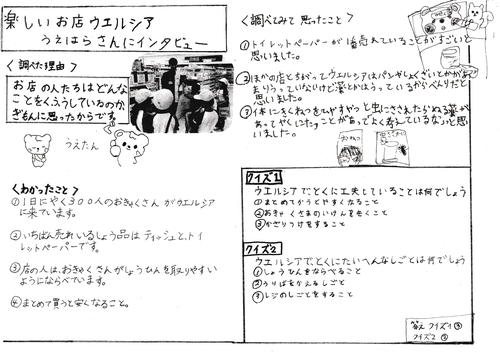 楽しいお店ウエルシア
うえはらさんにインタビュー
〈調べた理由〉
お店の人たちはどんな
ことをくふうしているのか
ぎもんに思ったからです
うえたん
〈わかったこと〉
①1日にやく300人のおきゃくさんがウエルシア
に来ています。
②いちばん売れているしょう品はティッシュと、トイ
レットペーパーです。
③店の人は、おきゃくさんがしょうひんを取りやすい
ようにならべています。
④まとめて買うと安くなること。
〈調べてみて思ったこと〉
①トイレットペーパーが
売れていることがすごいと
思いました。
②ほかの店とちがってウエルシアは
思いました。
③
いました。
クイズ1
ウエルシアでとくに工夫していることは何でしょう
①まとめてかうとやすくなること
②おきゃくさまのいけんをきくこと
③かざりつけをすること
クイズ2
ウエルシアでとくにたいへんなしごとは何でしょう
①しょうひんをならべること
②うりばをかえるしごと
③レジのしごとをすること
答え クイズ1③
クイズ2